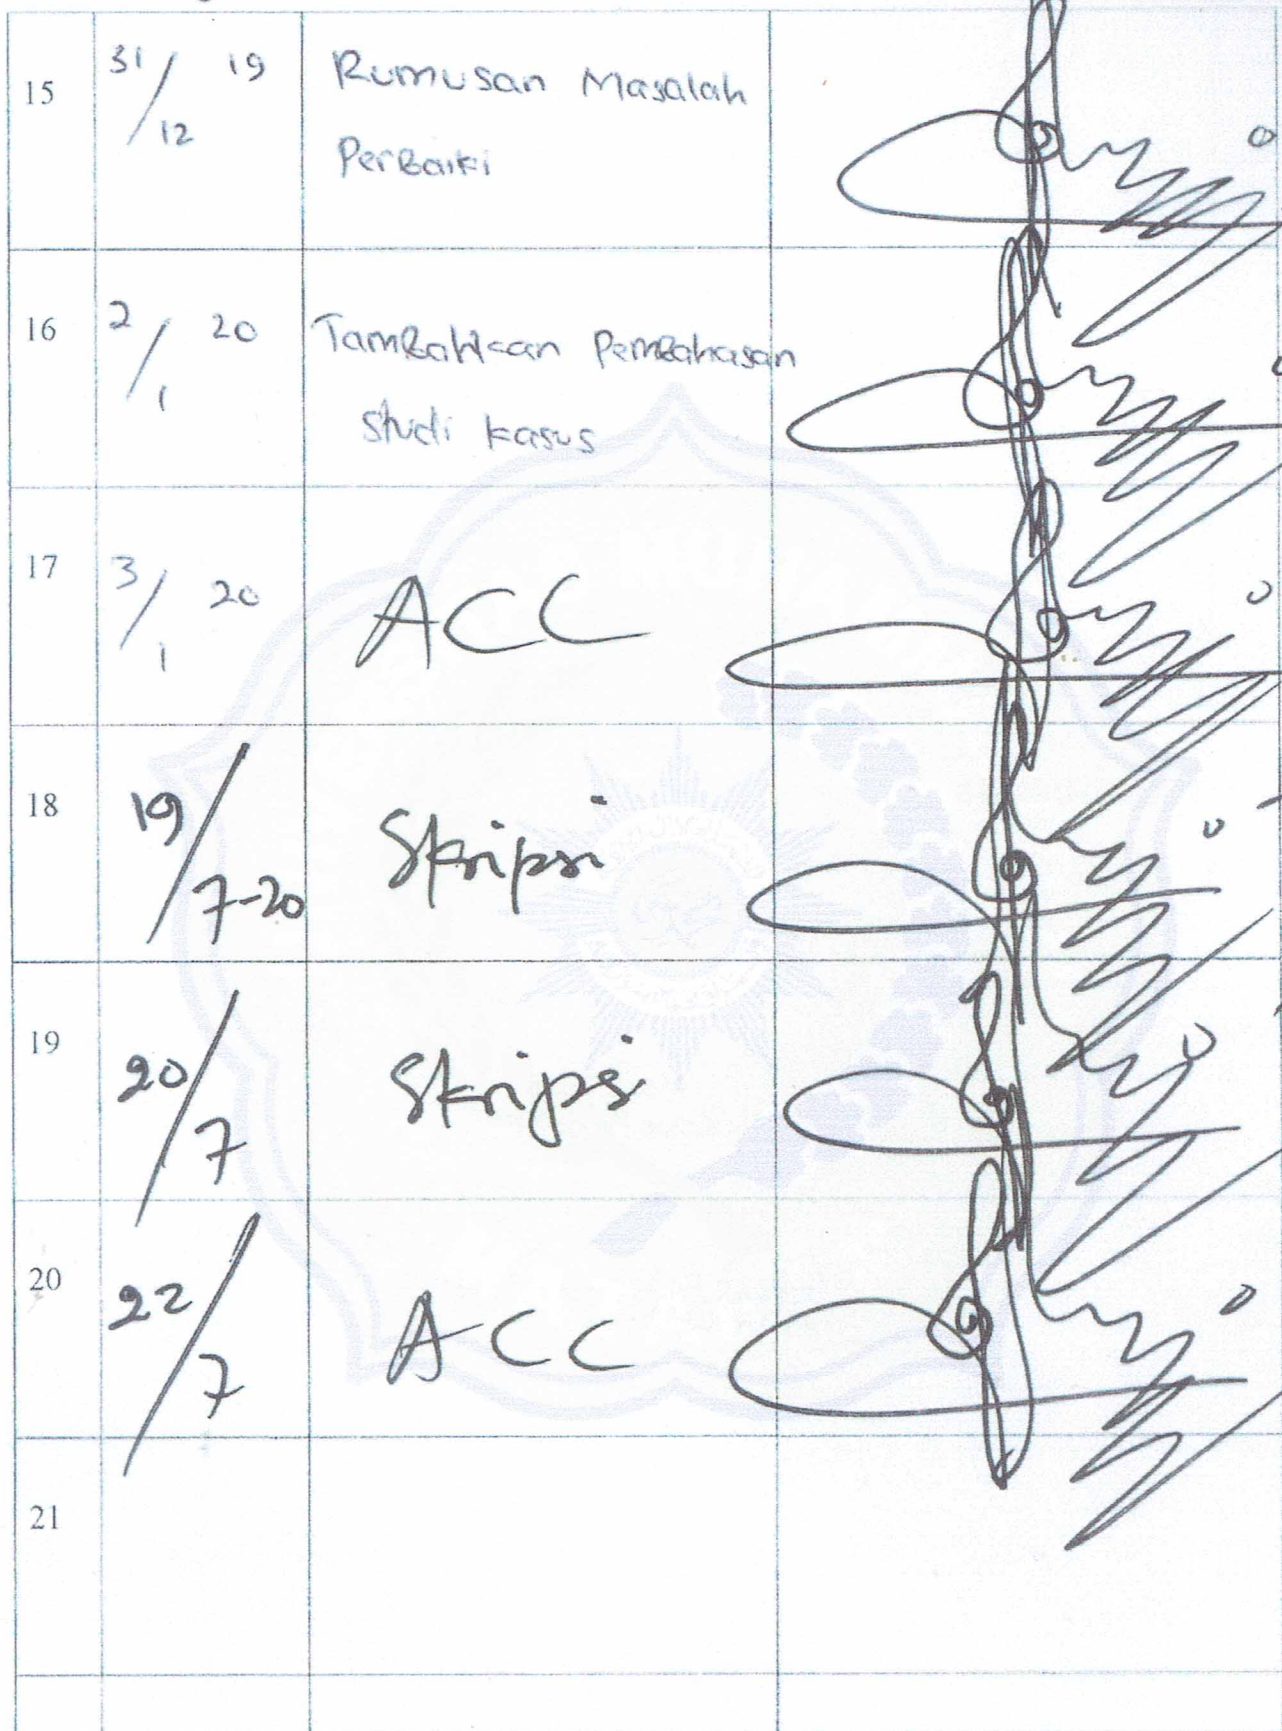 15 31/12 19 Rumusan Masalah
Perbaiki
16 2/1 20 Tambahkan Pembahasan
studi kasus
17 3/1 20 ACC
18 19/7-20 Skripsi
19 20/7 Skripsi
20 22/7 ACC
21